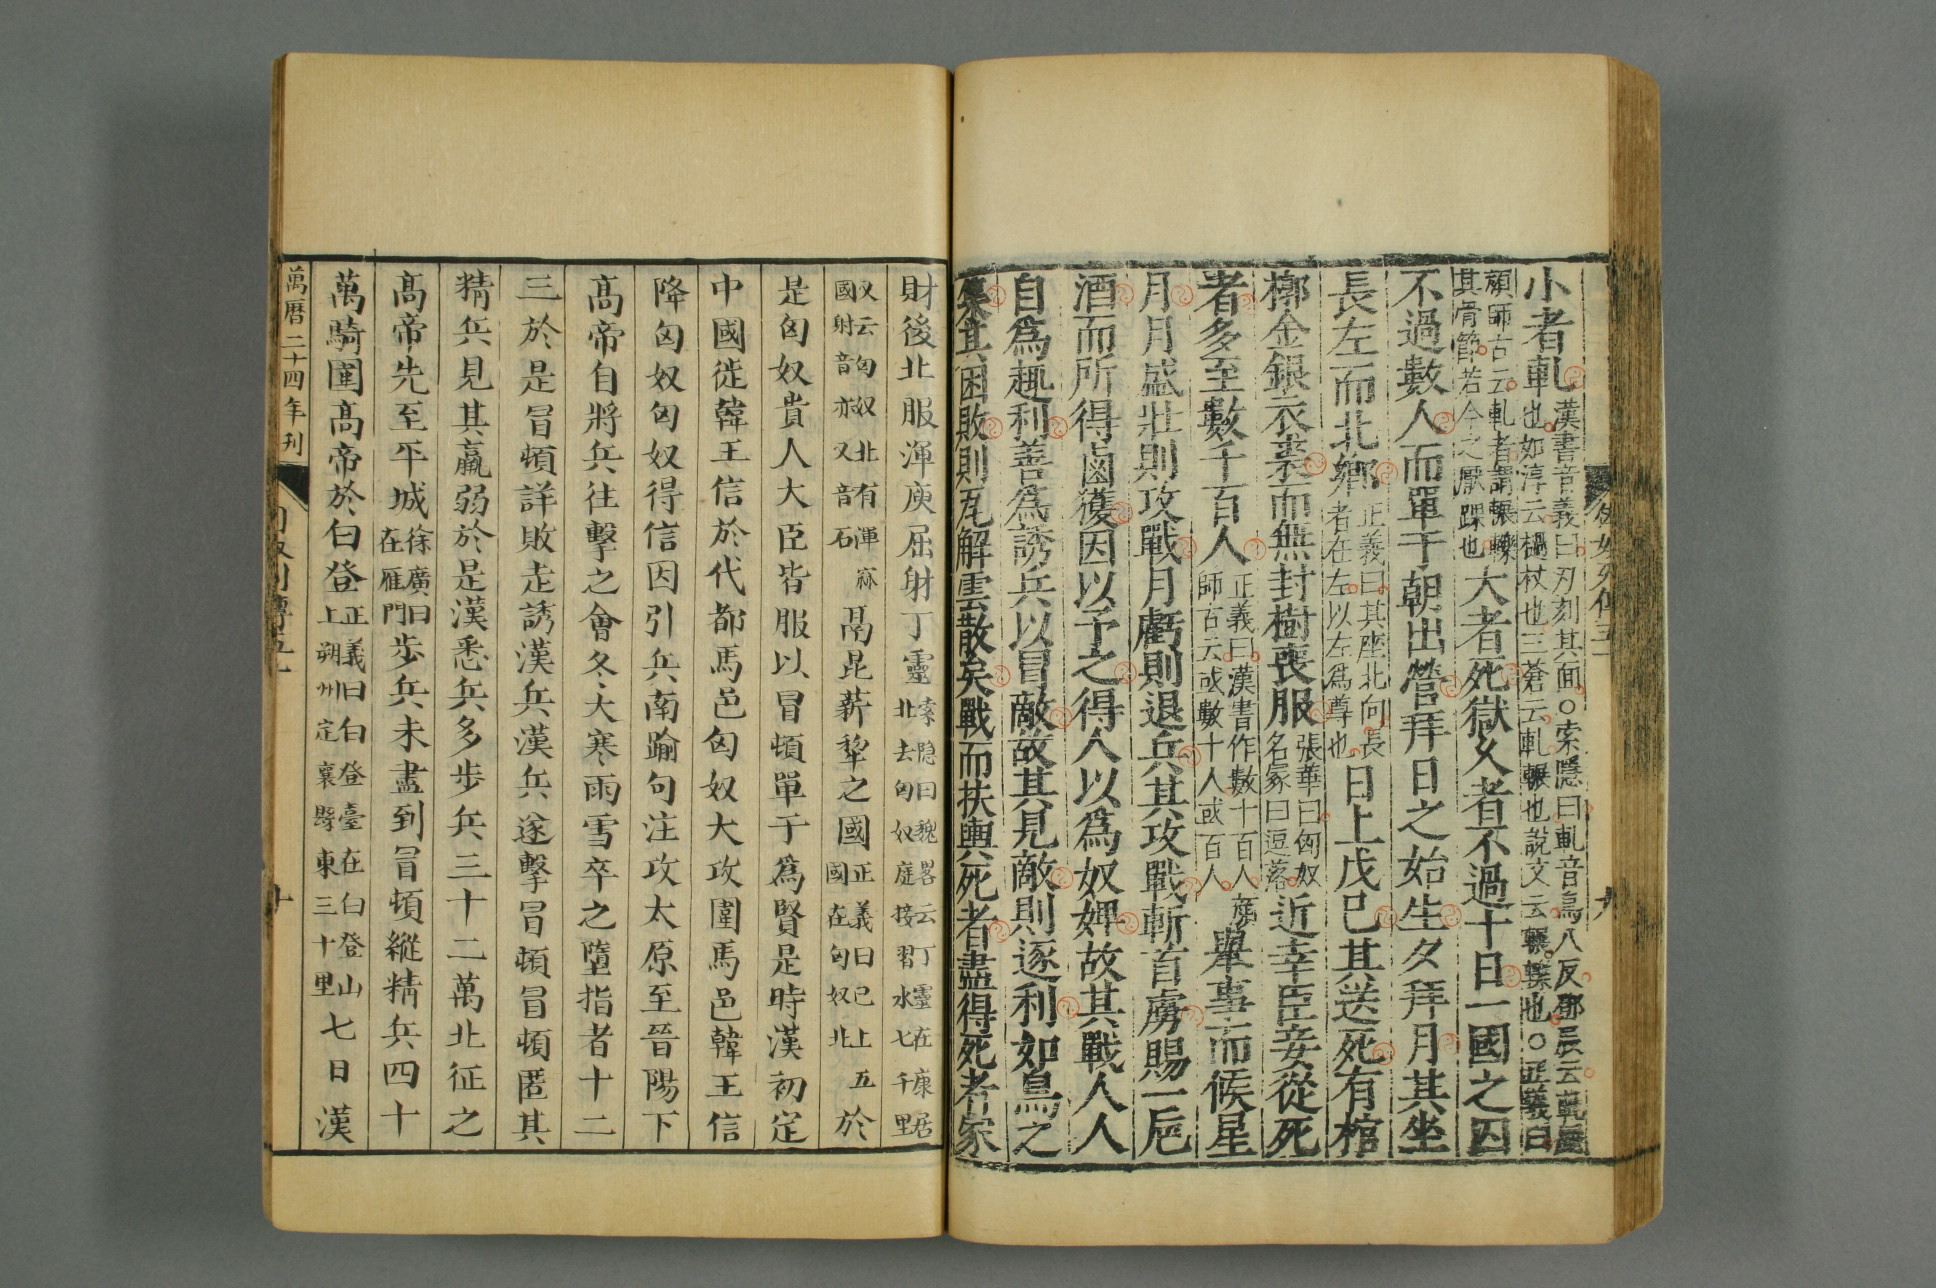 小者軋漢書音義曰刃刻其面○索隱曰軋音烏八反鄧展云軋歷也如淳云檛杖也三蒼云軋輾也說文云輾轢也○正義曰
顏師古云軋者謂輾轢其骨節若今之厭踝也大者死獄久者不過十日一國之囚
不過數人而單于朝出營拜日之始生夕拜月其坐
長左而北鄉正義曰其座北向長者在左以左爲尊也日上戊己其送死有棺
槨金銀衣裘而無封樹喪服張華曰匈奴名冢曰逗落近幸臣妾從死
者多至數千百人正義曰漢書作數十百人顏師古云或數十人或百人舉事而候星
月月盛壯則攻戰月虧則退兵其攻戰斬首虜賜一巵
酒而所得鹵獲因以予之得人以爲奴婢故其戰人人
自爲趣利善爲誘兵以冒敵故其見敵則逐利如鳥之
集其困敗則瓦解雲散矣戰而扶輿死者盡得死者家
財後北服渾庾屈射丁靈索隱曰魏畧云丁靈在康居北去匈奴庭接習水七千里
又云匈奴北有渾窳國射音亦又音石鬲昆薪犂之國正義曰已上五國在匈奴北於
是匈奴貴人大臣皆服以冒頓單于爲賢是時漢初定
中國徙韓王信於代都馬邑匈奴大攻圍馬邑韓王信
降匈奴匈奴得信因引兵南踰句注攻太原至晉陽下
高帝自將兵往擊之會冬大寒雨雪卒之墮指者十二
三於是冒頓詳敗走誘漢兵漢兵遂擊冒頓冒頓匿其
精兵見其羸弱於是漢悉兵多步兵三十二萬北征之
高帝先至平城徐廣曰在雁門步兵未盡到冒頓縱精兵四十
萬騎圍高帝於白登正義曰白登臺在白登山上朔州定襄縣東三十里七日漢
萬曆二十四年刊